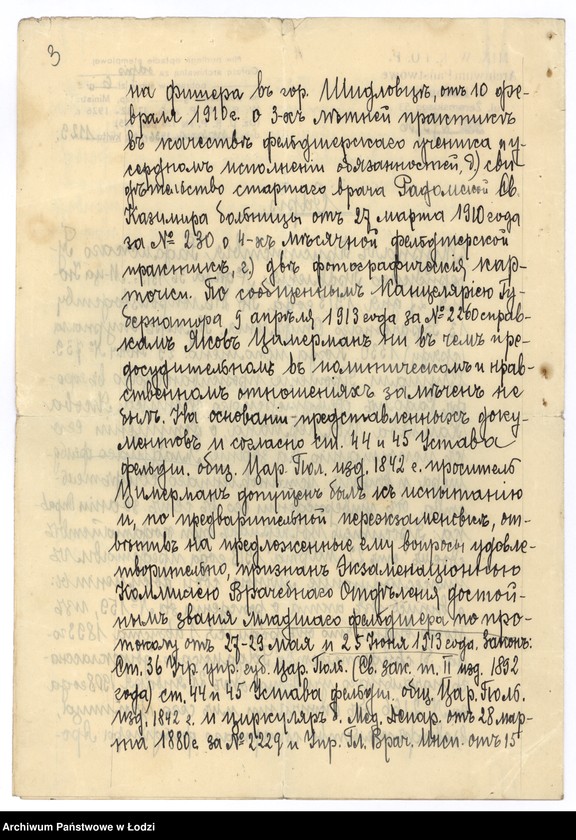 3
на фишера въ гор. Шидловцѣ, отъ 10 фе-
враля 1910 г. о 3-хъ лѣтней практикѣ
въ качествѣ фельдшерскаго ученика и у-
сердномъ исполненіи обязанностей, в) сви-
дѣтельство старшаго врача Радомской св.
Казимира больницы отъ 27 марта 1910 года
за № 230 о 4-хъ мѣсячной фельдшерской
практикѣ, г) двѣ фотографическія кар-
точки. По сообщеннымъ Канцеляріею Гу-
бернатора, 9 апрѣля 1913 года за № 2260 справ-
камъ Яковъ Цимерманъ ни въ чемъ пре-
досудительномъ въ политическомъ и нрав-
ственномъ отношеніяхъ замѣченъ не
былъ. На основаніи представленныхъ доку-
ментовъ и согласно ст. 44 и 45 Устава
фельдш. общ. Цар. Пол. изд. 1842 г. проситель
Цимерманъ допущенъ былъ къ испытанію
и, по предварительной переэкзаменовкѣ, от-
вѣтивъ на предложенные ему вопросы удовле-
творительно, признанъ Экзаменаціонною
Коммисіею Врачебнаго Отдѣленія достой-
нымъ званія младшаго фельдшера по про-
токолу отъ 27-29 мая и 25 Іюня 1913 года. Законъ:
Ст. 36 Учр. упр. губ. Цар. Поль. (Св. зак. т. II изд. 1892
года) ст. 44 и 45 Устава фельдш. общ. Цар. Поль.
изд. 1842 г. и циркуляръ б. Мед. Депар. отъ 28 мар-
та 1880 г. за № 2229 и Упр. Гл. Врач. Инсп. отъ 15
Archiwum Państwowe w Łodzi